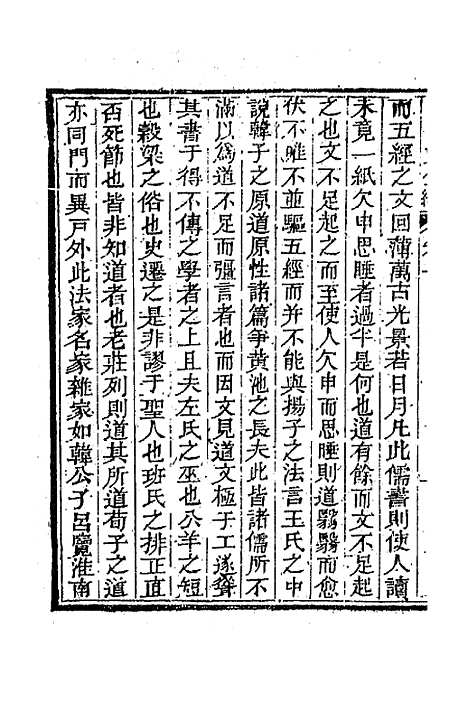 而五經之文回薄萬古光景若日月凡此儒書則使人讀
未竟一紙欠申思睡者過半是何也道有餘而文不足起
之也文不足起之而至使人欠申而思睡則道翳翳而愈
伏不雖不並驅五經而并不能與揚子之法言王氏之中
說韓子之原道原性諸篇爭黃池之長夫此皆諸儒所不
滿以為道不足而彊言者也而因文見道文極于工遂聳
其書于得不傳之學者之上且夫左氏之巫也公羊之短
也穀梁之俗也史遷之是非謬于聖人也班氏之排正直
否死節也皆非知道者也老莊列則道其所道荀子之道
亦同門而異戸外此法家名家雜家如韓公子呂覽淮南